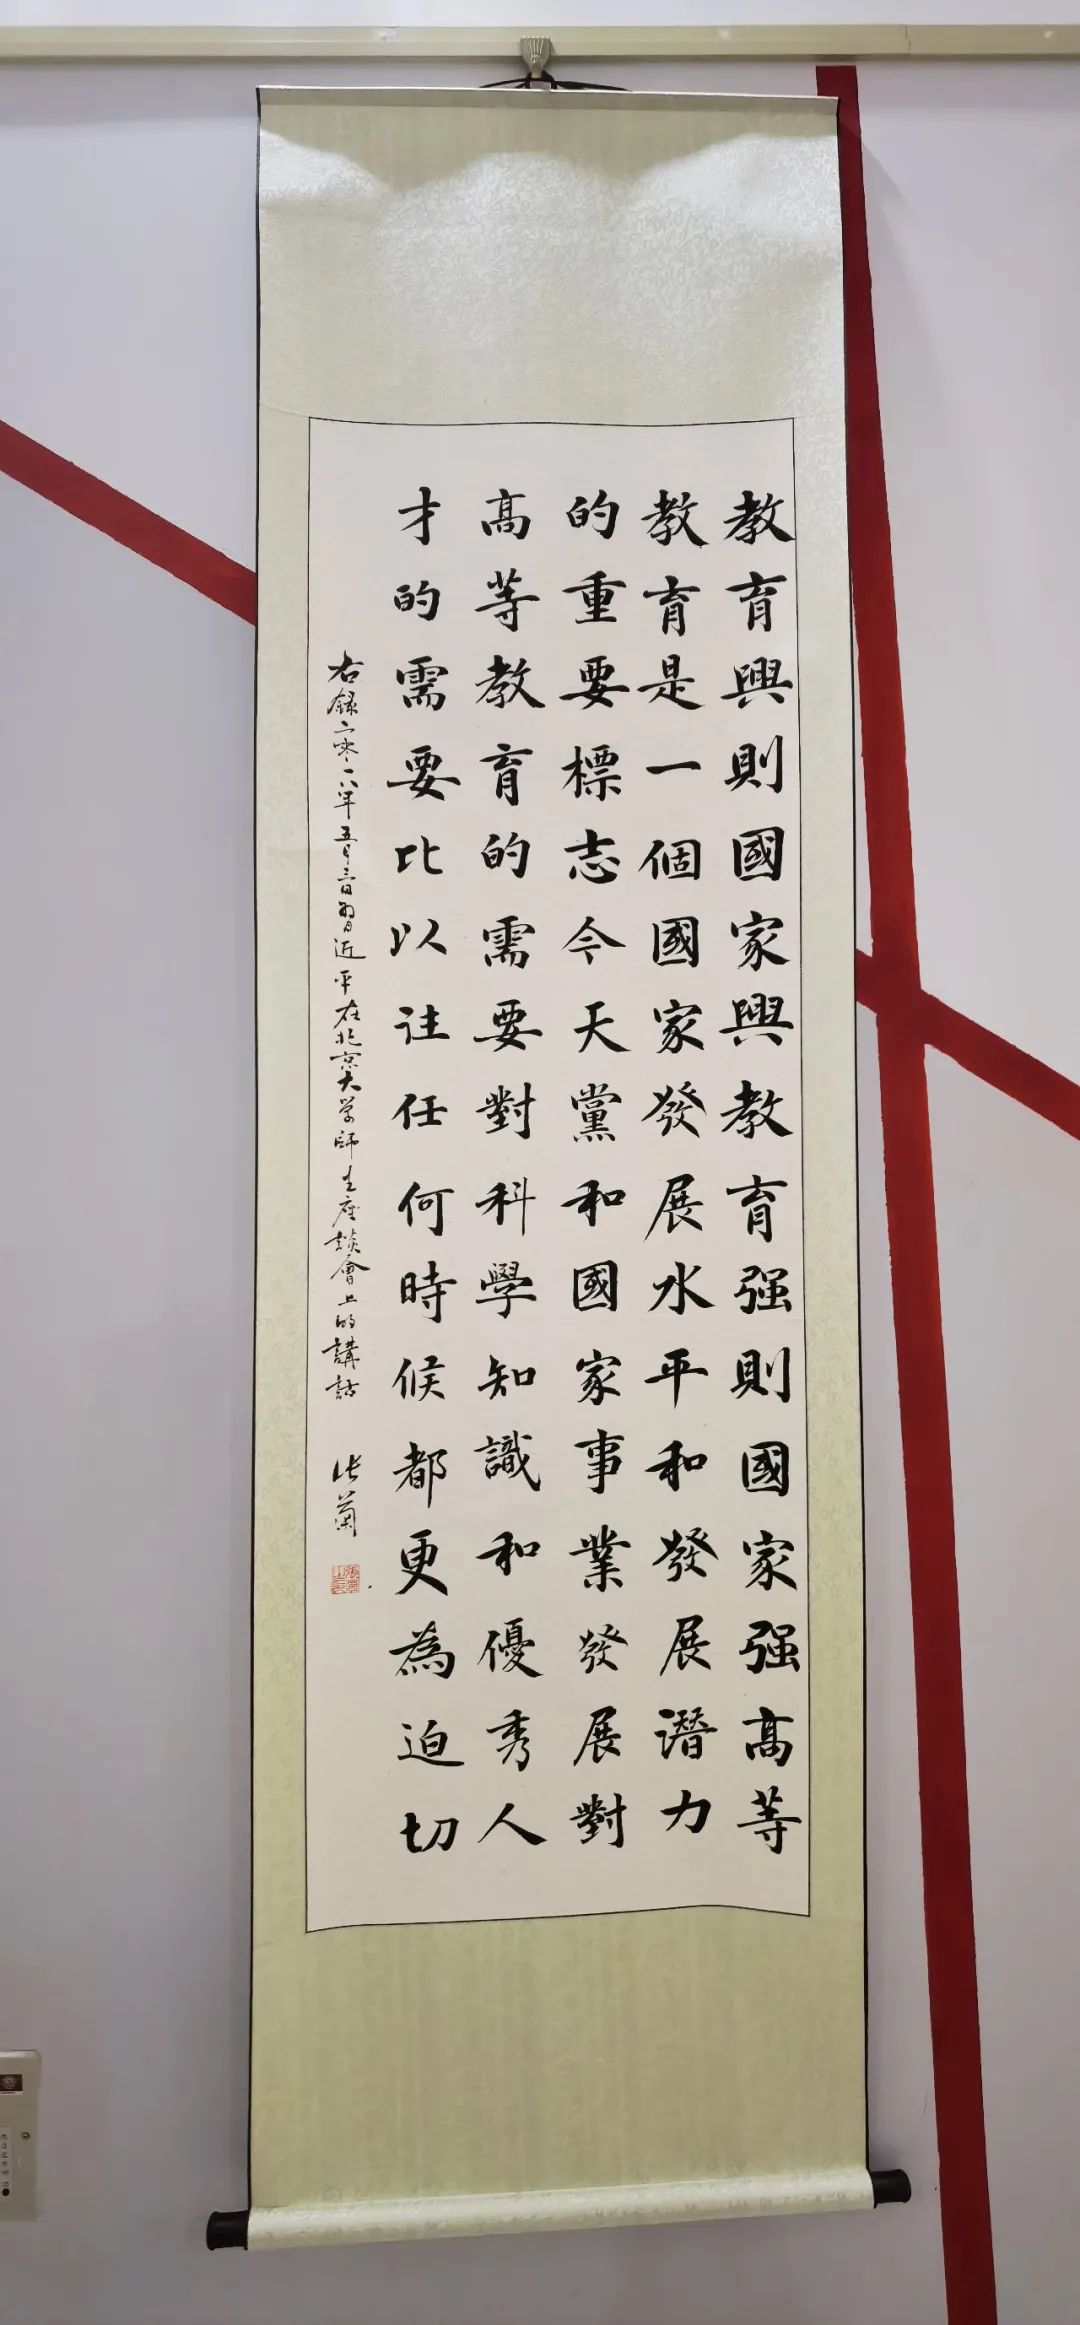 教育興則國家興教育强則國家强高等
教育是一個國家發展水平和發展潛力
的重要標志今天黨和國家事業發展對
高等教育的需要對科學知識和優秀人
才的需要比以往任何時候都更為迫切
右錄二零一八年五月二日習近平在北京大学師生座談會上的講話
张蘭